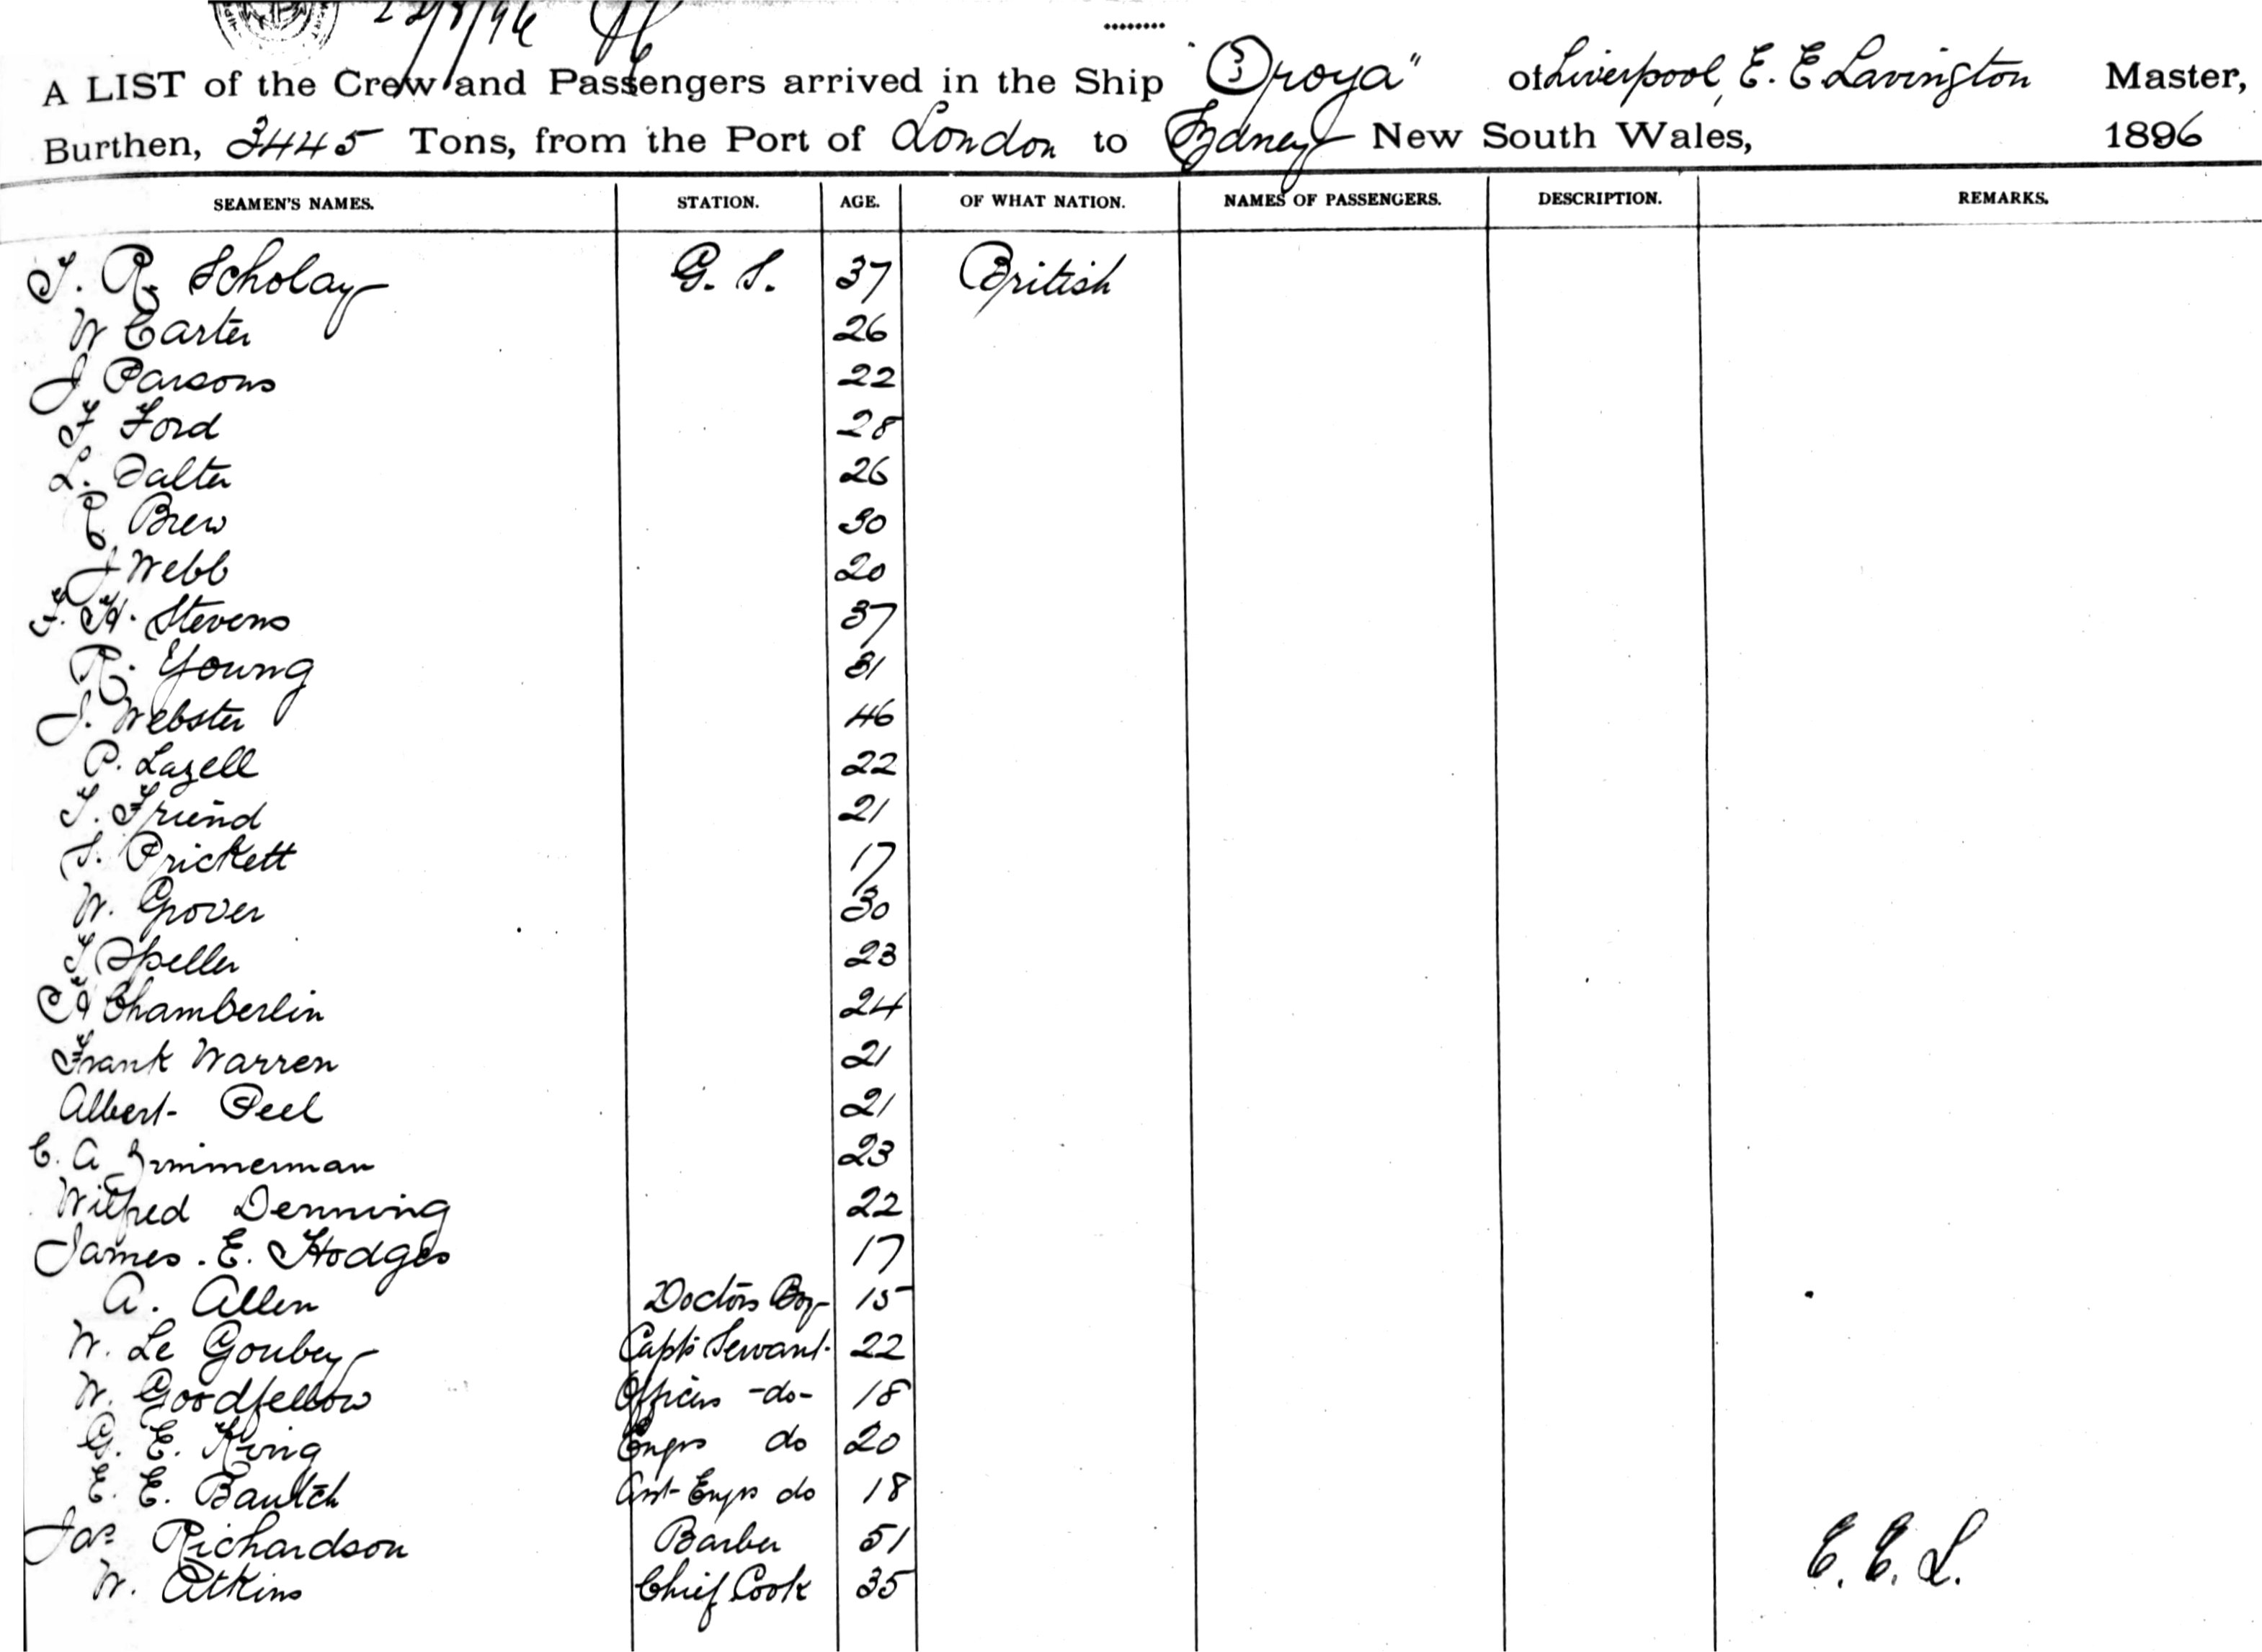 22/8/96
A LIST of the Crew and Passengers arrived in the Ship "Oroya" of Liverpool, E. E Lavington Master,
Burthen, 3445 Tons, from the Port of London to Sydney New South Wales, 1896
SEAMEN'S NAMES. STATION. AGE. OF WHAT NATION. NAMES OF PASSENGERS. DESCRIPTION. REMARKS.
T. R. Scholay G. S. 37 British
W Carter 26
J Parsons 22
F Ford 28
L. Dalter 26
Brew 30
J Webb 20
F. H. Stevens 37
R. Young 31
J. Webster 46
P. Lazell 22
T. Friend 21
S. Prickett 17
W. Grover 30
T Speller 23
Chamberlin 24
Frank Warren 21
Albert Peel 21
C. A Zimmerman 23
Wilfred Denning 22
James. E. Hodges 17
A. Allen Doctors Boy 15
W. Le Goubey Capts Servant. 22
W. Goodfellow Officers -do- 18
G. E. King Engrs do 20
E. E. Bautch Asst Engrs do 18
Jas Richardson Barber 51
W. Atkins Chief Cook 35
E. E. L.